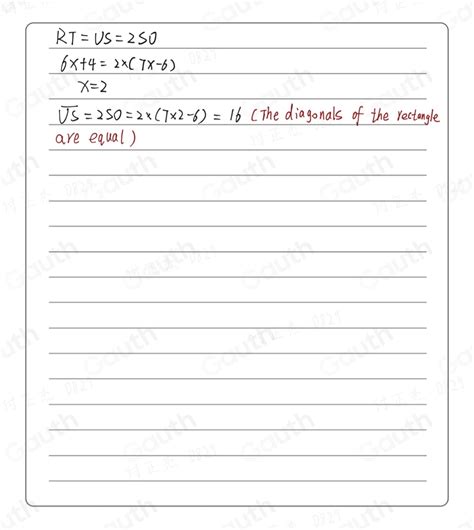 RT = US = 2SO
6x+4 = 2×(7x-6)
x=2
U̅S̅ = 2SO = 2×(7×2-6) = 16 (The diagonals of the rectangle
are equal)